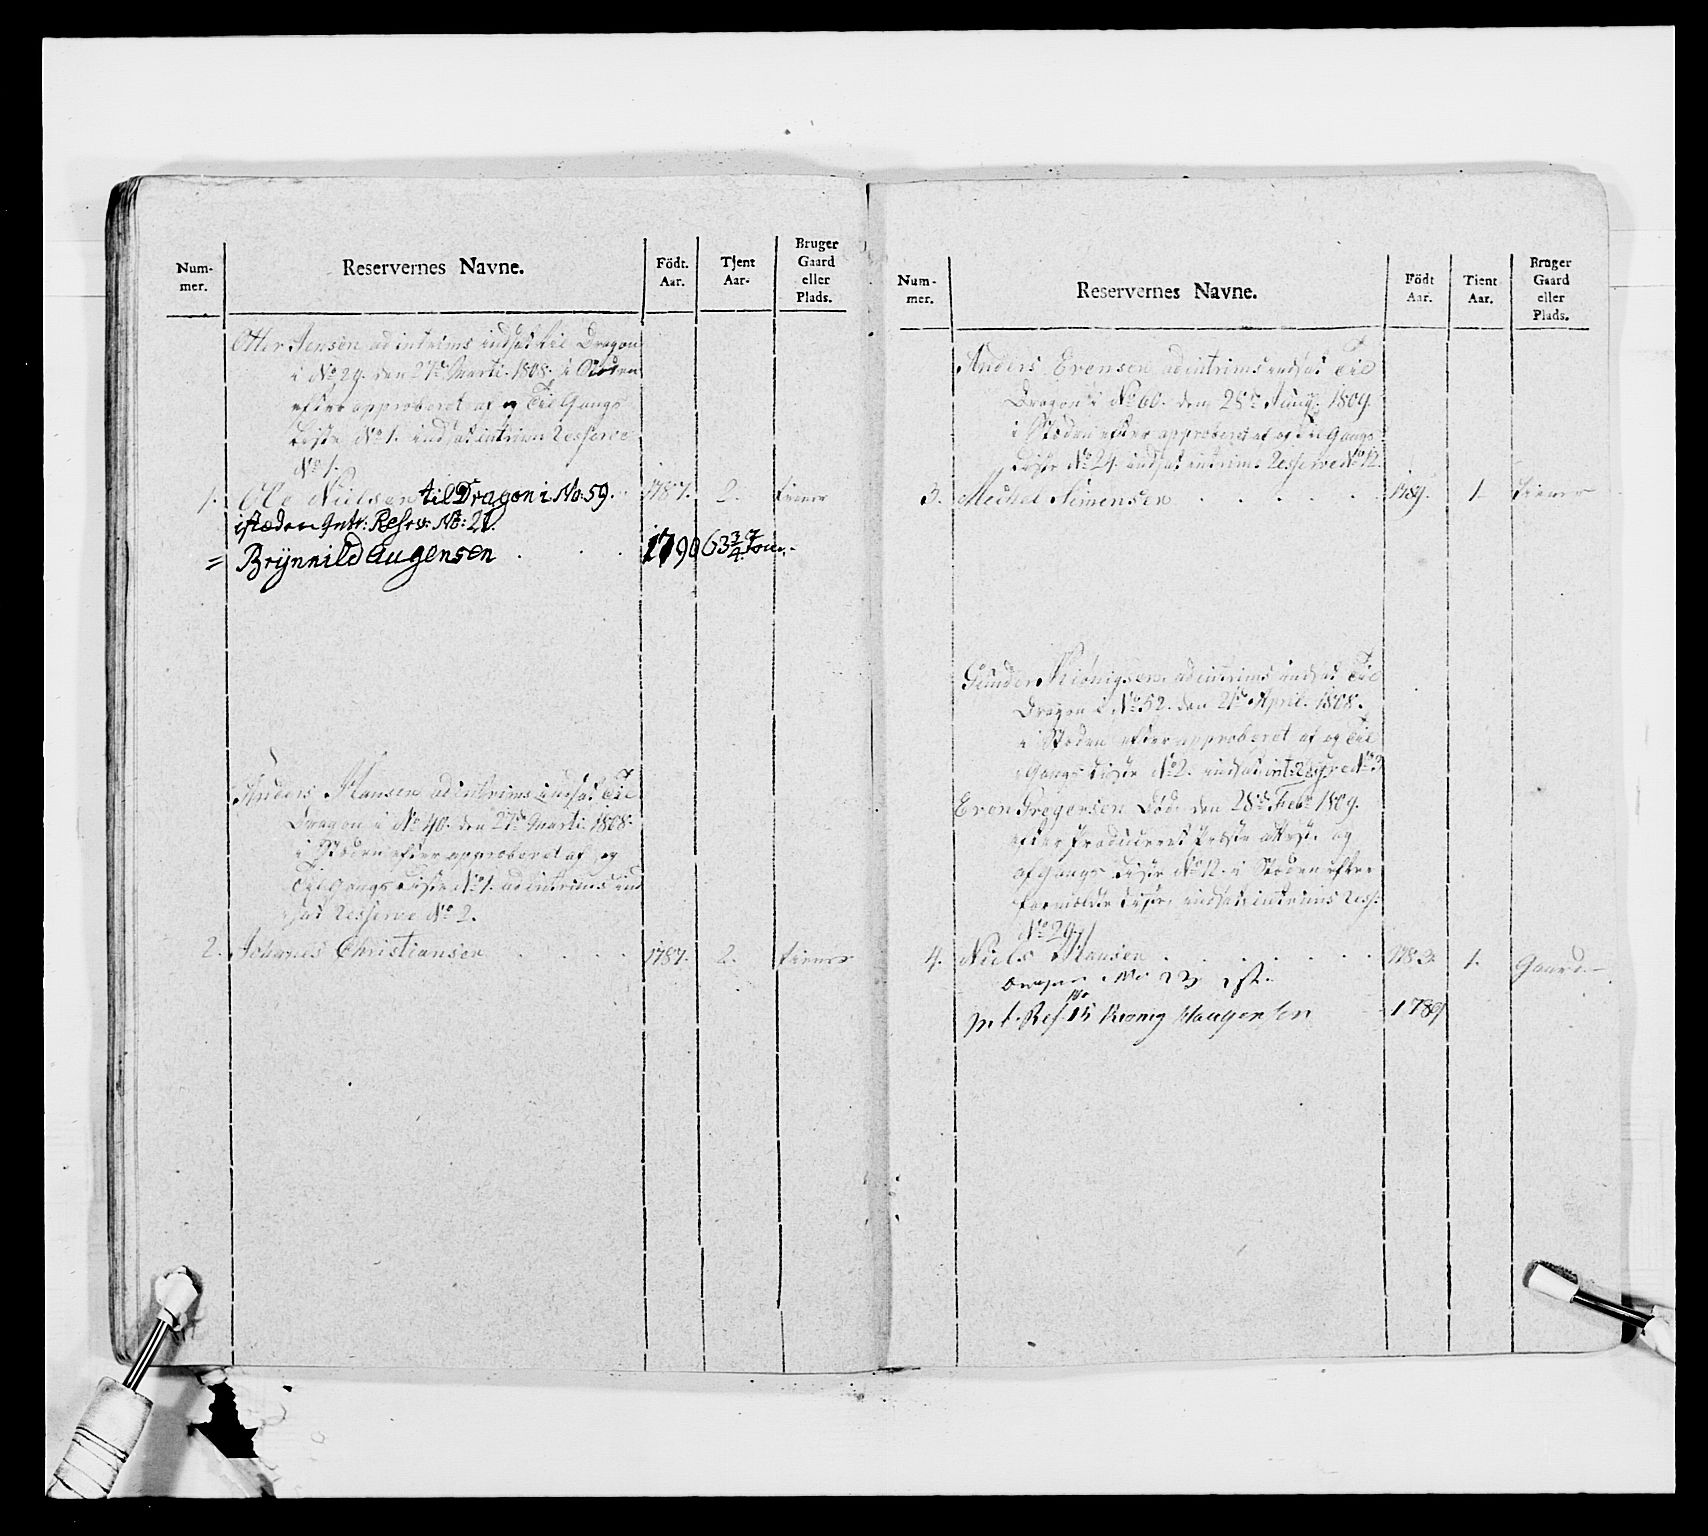 Num-
mer.
Reservernes Navne.
Födt.
Aar.
Tjent
Aar.
Bruger
Gaard
eller
Plads.
Otter Jensen ad intrims indsat til Dragon
i No 29. den 27de Marti. 1808. i Stæden
efter approberet af og Til Gangs
Liste No 1. indsat intrims Resserve
No 1.
1. Ole Nielsen til Dragon i No: 59. 1787. 2. tiener
istæden Intr: Reserv: No: 21.
= Brÿnnild Augensen 1790 63 3/4 Tom.
Anders Hansen ad intrims indsat Til
Dragon i No 40. den 27de Marti 1808.
i Stæden efter approberet af og
Til Gangs Liste No 1. ad intrims ind
sat Resserve No 2.
2. Johannes Christiansen 1787. 2. tiener
Num-
mer.
Reservernes Navne.
Födt
Aar.
Tient
Aar.
Bruger
Gaard
eller
Plads.
Anders Evensen ad intrims indsat Til
Dragon i No 60. den 28de Junÿ. 1809.
i Stæden efter approberet af og Til Gangs
Liste No 24. indsat intrims Resserve No 12.
3. Michel Simensen 1789. 1. tiener
Gunder Kiönigsen ad intrims indsat Til
Dragon i No 52. den 21de April. 1808.
i Stæden efter approberet af og Til
Gangs Liste No 2. indsat int: Resserve No 3
Even Gregersen Död den 28de Febr 1809.
efter Produceret Præste attest. og
afgangs Liste No 12. i Stæden efter
formeldte Liste, indsat intrims Ress:
No 29.
4. Niels Hansen 1783. 1. Gaard
Dragon No 23 ist.
Int. Res. No 15 Kronig Haagensen 1789